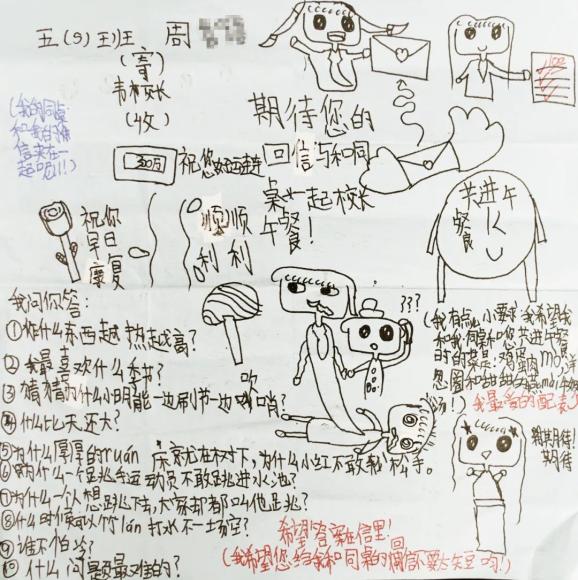 五(9)班 周
(寄)
韦校长
(收)
(我的同桌
和我的
信装在一
起哟!!)
100
期待您的
回信与和同
桌一起校长
午餐!
30元
祝您好运连连
祝你
早日
康复
顺顺
利利
共进午
餐
我问你答:
①什么东西越热越高?
②我最喜欢什么季节?
③猜猜为什么小明能一边刷牙一边吹口哨?
④什么比天还大?
⑤为什么厚厚的ruán床就在树下,为什么小红不敢松手。
⑥为什么一个跳水运动员不敢跳进水池?
⑦为什么一个人想跳下去,大家却都叫他跳?
⑧什么时候可以竹lán打水不一场空?
⑨谁不怕冷?
⑩什么问题最难的?
???
(我有点小要求,我希望我
和我同桌和您共进午餐
时的菜是:鸡蛋
我最爱的配表
期待!
希望答案在信里!
(我希望您给我和同桌的回信不要太短哟!)